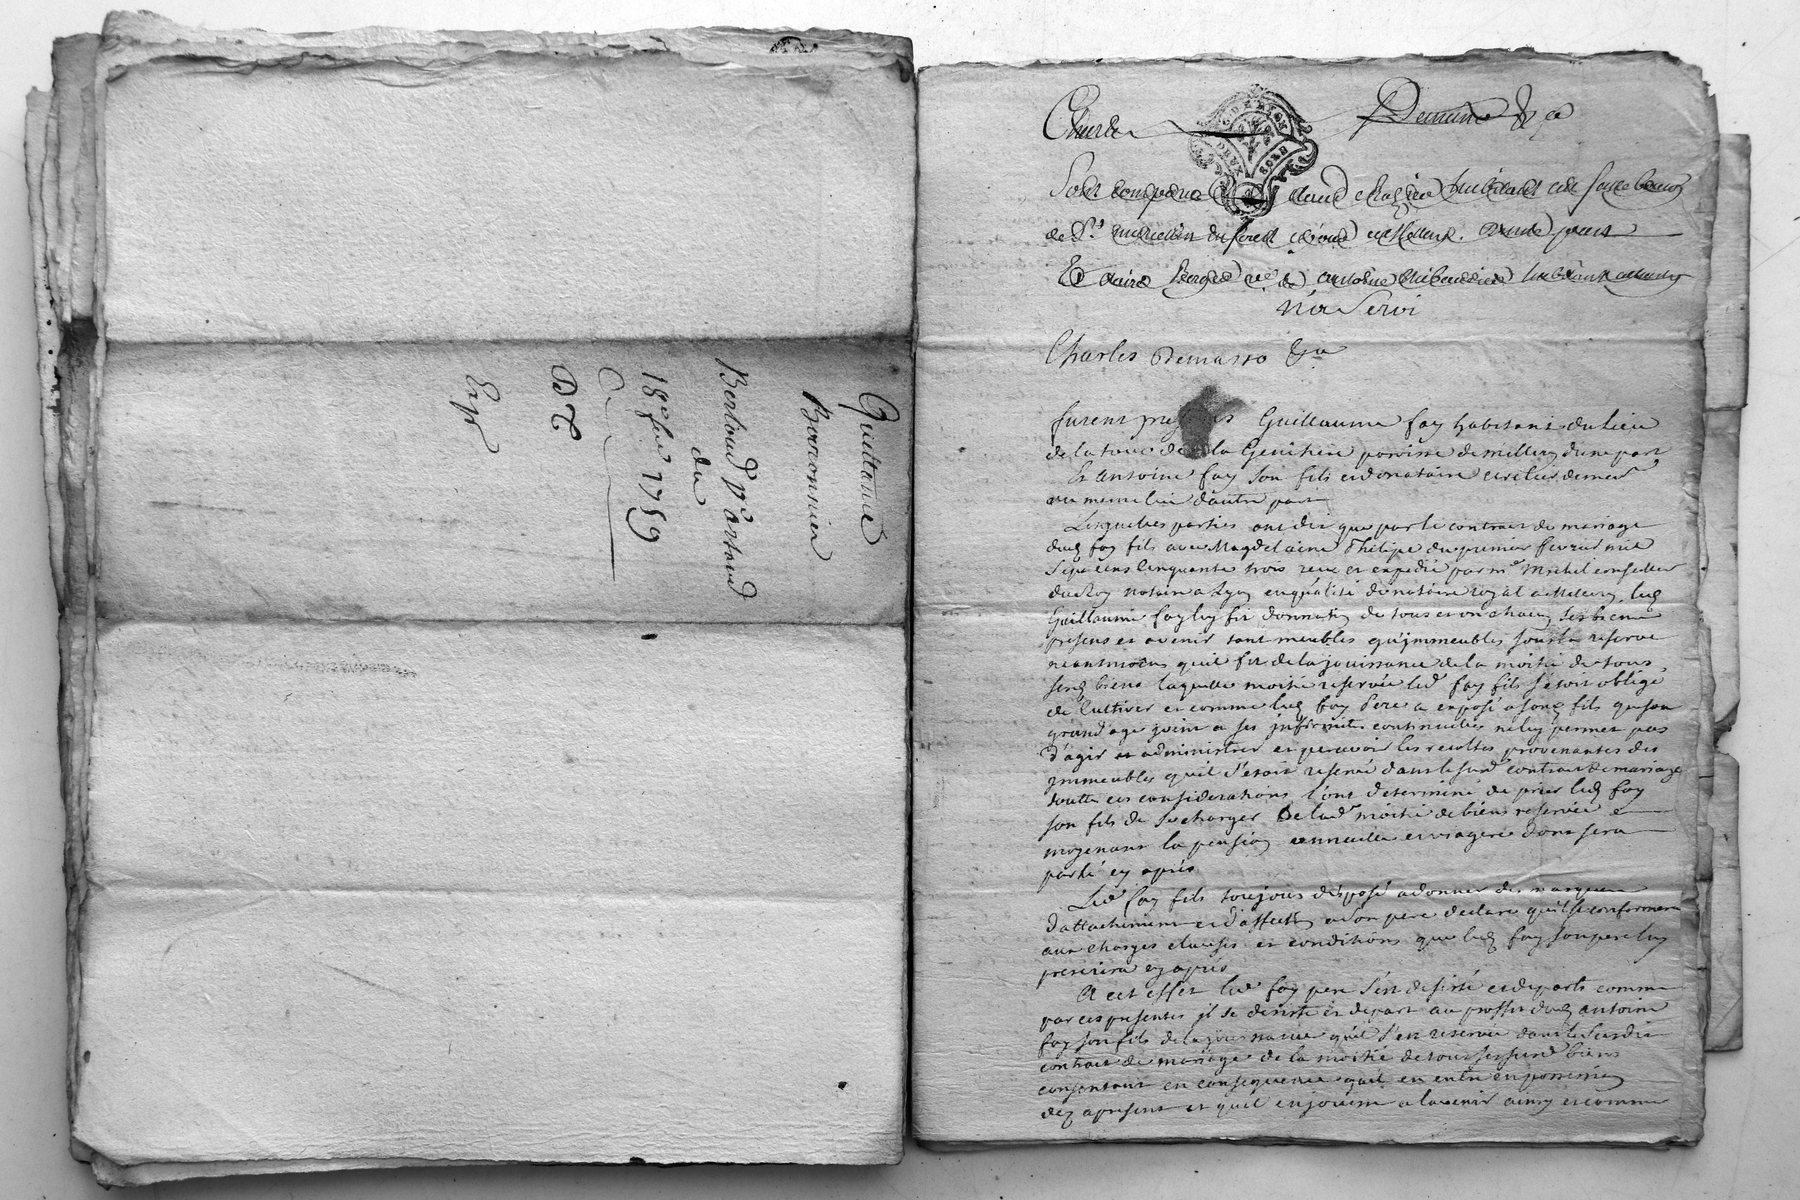 Quittance
Baronnier
Bertoud pr. artaud
du
18e fev. 1759
D T
Exp
Charles Demasso &ca
GDE LYON
DEUX SOLS
Sont comparus habitant
de St. marcellin en forest
Et Claire ve. de antoine thibaudier habitant
n'a Servi
Charles Demasso &ca
furent presens Guillaume fay habitant du lieu
de la tour de la paroisse de millery d'une part
Et antoine fay son fils et donataire
au meme lieu d'autre part
Lesquelles parties ont dit que par le contrat de mariage
dud fay fils avec Magdelaine Philipe du premier fevrier mil
sept cens cinquante trois receu et expedié par me. Michel conseiller
du Roy notaire a Lyon en qualité de notaire royal a Millery, led
Guillaume fay luy fit donnation de tous et un chacun ses biens
presens et avenir tant meubles qu'jmmeubles sous la reserve
neantmoins quil fit de la jouissance de la moitié de tous
sesd biens laquelle moitié reservée led fay fils s'etoit obligé
de Cultiver et comme led fay Pere a exposé a sond fils que son
grand age joint a ses jnfirmités continuelles ne luy permet pas
d'agir et administrer et percevoir les recoltes provenantes des
jmmeubles quil s'etoit reservé dans le susd contrat de mariage
toutes ces considerations l'ont determiné de prier led fay
son fils de se charger de lad moitié de biens reservée
moyenant la pension annuelle et viagere dont sera
parlé cy après
Led fay fils toujours disposé a donner des marques
d'attachement et d'affection a son pere declare qu'il se conformera
aux charges clauses et conditions que led fay son pere luy
prescrira cy après
A cet effet led fay pere s'est desisté et departi comme
par ces presentes jl se desiste et depart au proffit dud antoine
fay son fils de la jouissance quil s'est reservée dans le susdit
contrat de mariage de la moitié de tous sesusd biens
consentant en consequence quil en entre en possession
dez apresent et quil en jouisse a l'avenir ainsy et comme